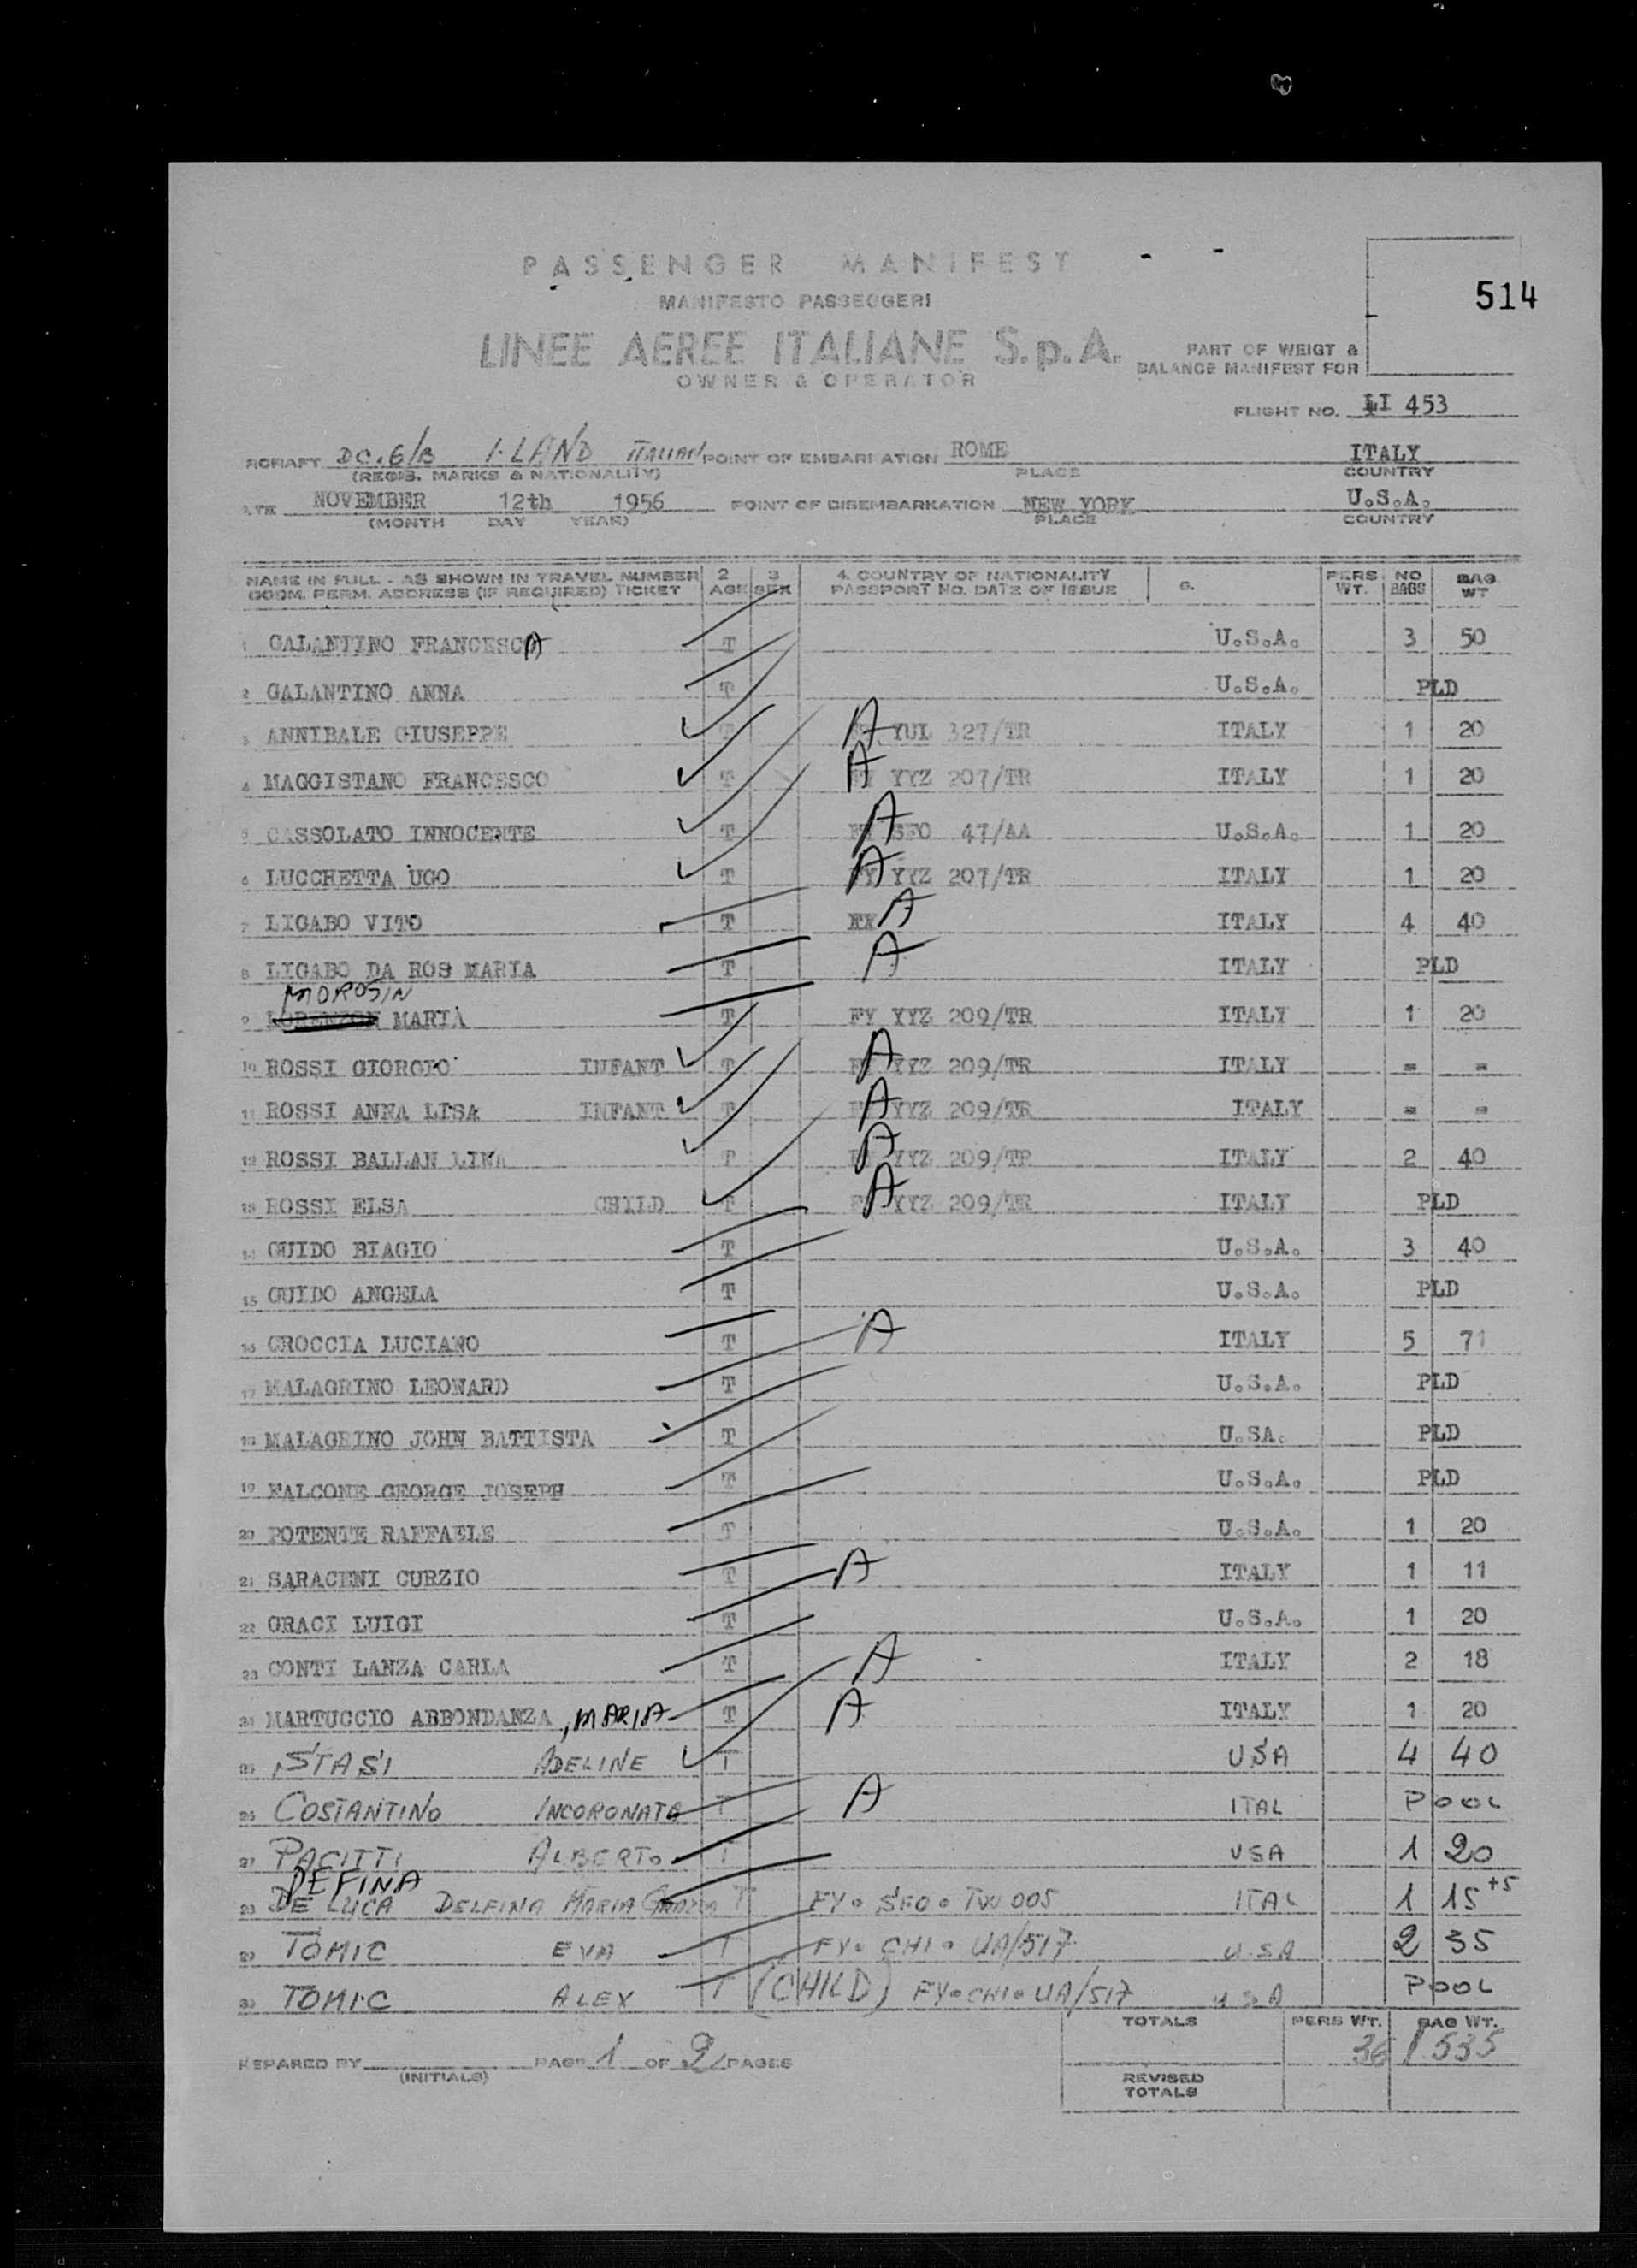 PASSENGER MANIFEST
MANIFESTO PASSEGGERI
514
LINEE AEREE ITALIANE S.p.A.
OWNER & OPERATOR
PART OF WEIGT &
BALANCE MANIFEST FOR
FLIGHT NO. LI 453
RCRAFT DC.6/B I.LAND ITALIAN POINT OF EMBARKATION ROME ITALY
(REGIS. MARKS & NATIONALITY) PLACE COUNTRY
NOVEMBER 12th 1956 POINT OF DISEMBARKATION NEW YORK U.S.A.
(MONTH DAY YEAR) PLACE COUNTRY
NAME IN FULL - AS SHOWN IN TRAVEL NUMBER 2 3 4. COUNTRY OF NATIONALITY PERS NO BAG
DOCM. PERM. ADDRESS (IF REQUIRED) TICKET AGE SEX PASSPORT NO. DATE OF ISSUE WT. BAGS WT
1 GALANTINO FRANCESCA T U.S.A. 3 50
2 GALANTINO ANNA T U.S.A. PLD
3 ANNIBALE GIUSEPPE T A YUL 327/TR ITALY 1 20
4 MAGGISTANO FRANCESCO T A YYZ 207/TR ITALY 1 20
5 CASSOLATO INNOCENTE T A SFO 47/AA U.S.A. 1 20
6 LUCCHETTA UGO T A YYZ 207/TR ITALY 1 20
7 LIGABO VITO T A ITALY 4 40
8 LIGABO DA ROS MARIA T A ITALY PLD
MOROSIN
9 LORENZON MARIA T FY YYZ 209/TR ITALY 1 20
10 ROSSI GIORGIO INFANT T A YYZ 209/TR ITALY = =
11 ROSSI ANNA LISA INFANT T A YYZ 209/TR ITALY = =
12 ROSSI BALLAN LINA T A YYZ 209/TR ITALY 2 40
13 ROSSI ELSA CHILD T A YYZ 209/TR ITALY PLD
14 GUIDO BIAGIO T U.S.A. 3 40
15 GUIDO ANGELA T U.S.A. PLD
16 CROCCIA LUCIANO T A ITALY 5 71
17 MALAGRINO LEONARD T U.S.A. PLD
18 MALAGRINO JOHN BATTISTA T U.SA. PLD
19 FALCONE GEORGE JOSEPH T U.S.A. PLD
20 POTENTE RAFFAELE T U.S.A. 1 20
21 SARACENI CURZIO T A ITALY 1 11
22 GRACI LUIGI T U.S.A. 1 20
23 CONTI LANZA CARLA T A ITALY 2 18
24 MARTUCCIO ABBONDANZA, MARIA T A ITALY 1 20
25 STASI ADELINE T USA 4 40
26 COSTANTINO INCORONATA T A ITAL POOL
27 PACITTI ALBERTO T USA 1 20
DEFINA
28 DE LUCA DELFINA MARIA GRAZIA T FY. SFO. TW 005 ITAL 1 15 +5
29 TOMIC EVA T FY. CHI. UA/517 USA 2 35
30 TOMIC ALEX T (CHILD) FY.CHI.UA/517 USA POOL
TOTALS PERS WT. BAG WT.
REPARED BY PAGE 1 OF 2 PAGES 36 / 535
(INITIALS)
REVISED
TOTALS